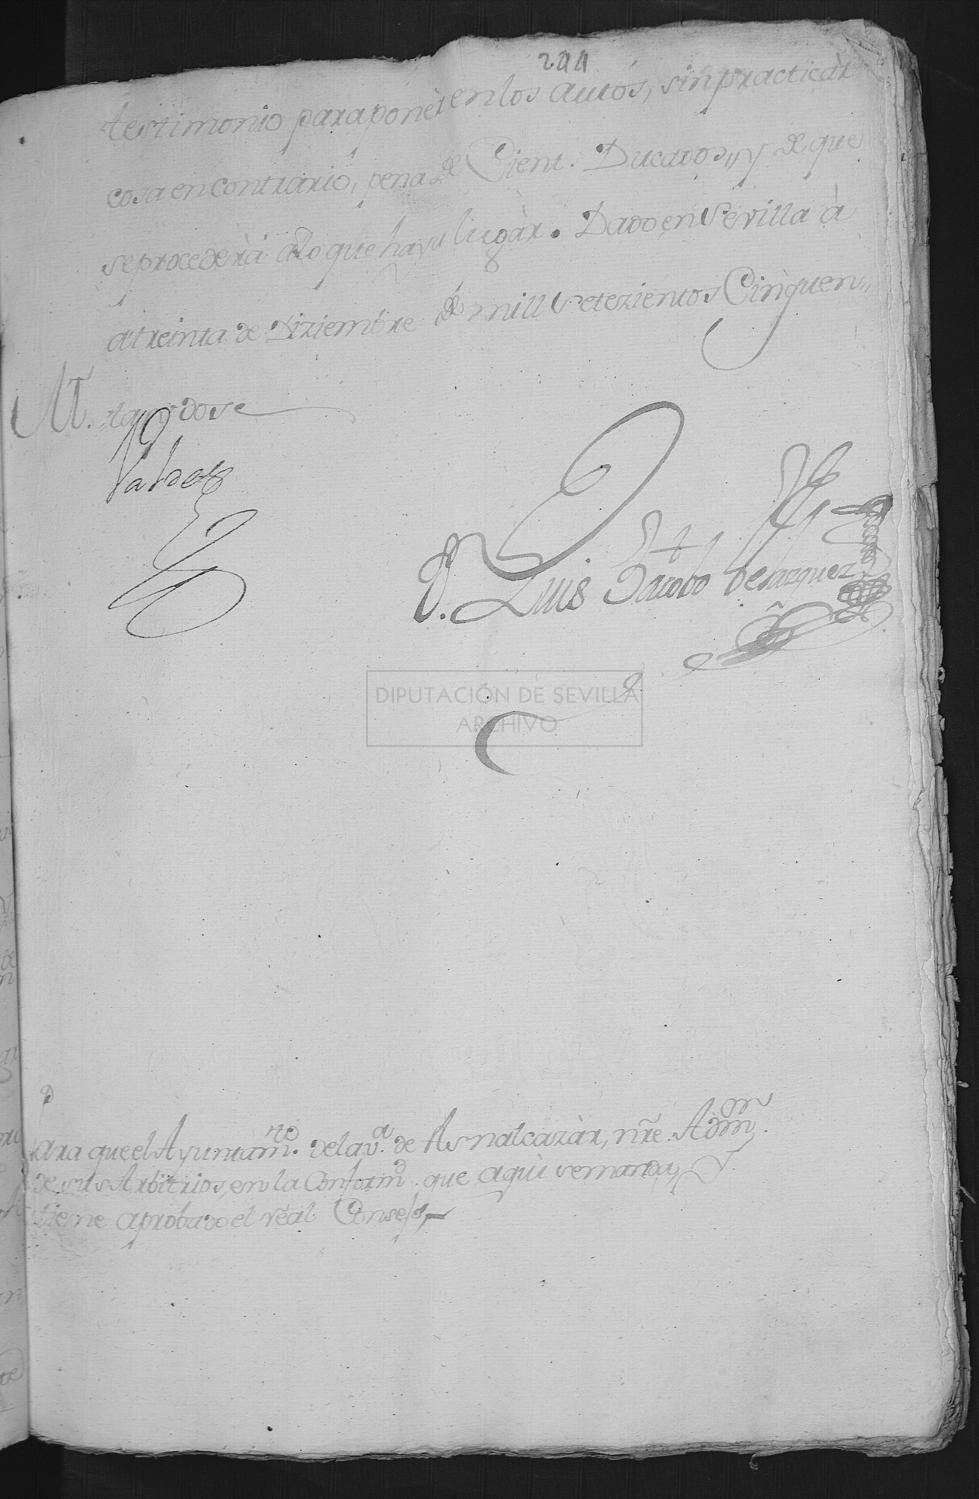 244
testimonio para poner en los autos, sin practicàr
cosa en contrario, pena de Cient. Ducados, y de que
se procederà a lo que haya lugàr. Dado en Sevilla à
a treinta de Diziembre de mill setezientos Cinquen,,
ta y dos
Valdes
D. Luis Jacobo Velazquez
DIPUTACIÓN DE SEVILLA
ARCHIVO
Para que el Ayuntam.to de la v.a de Asnalcazàr, nre. Adm.or
de sus Arbitrios, en la Conform.d que aqui se manda, y
tiene aprobado el rèal Consejo